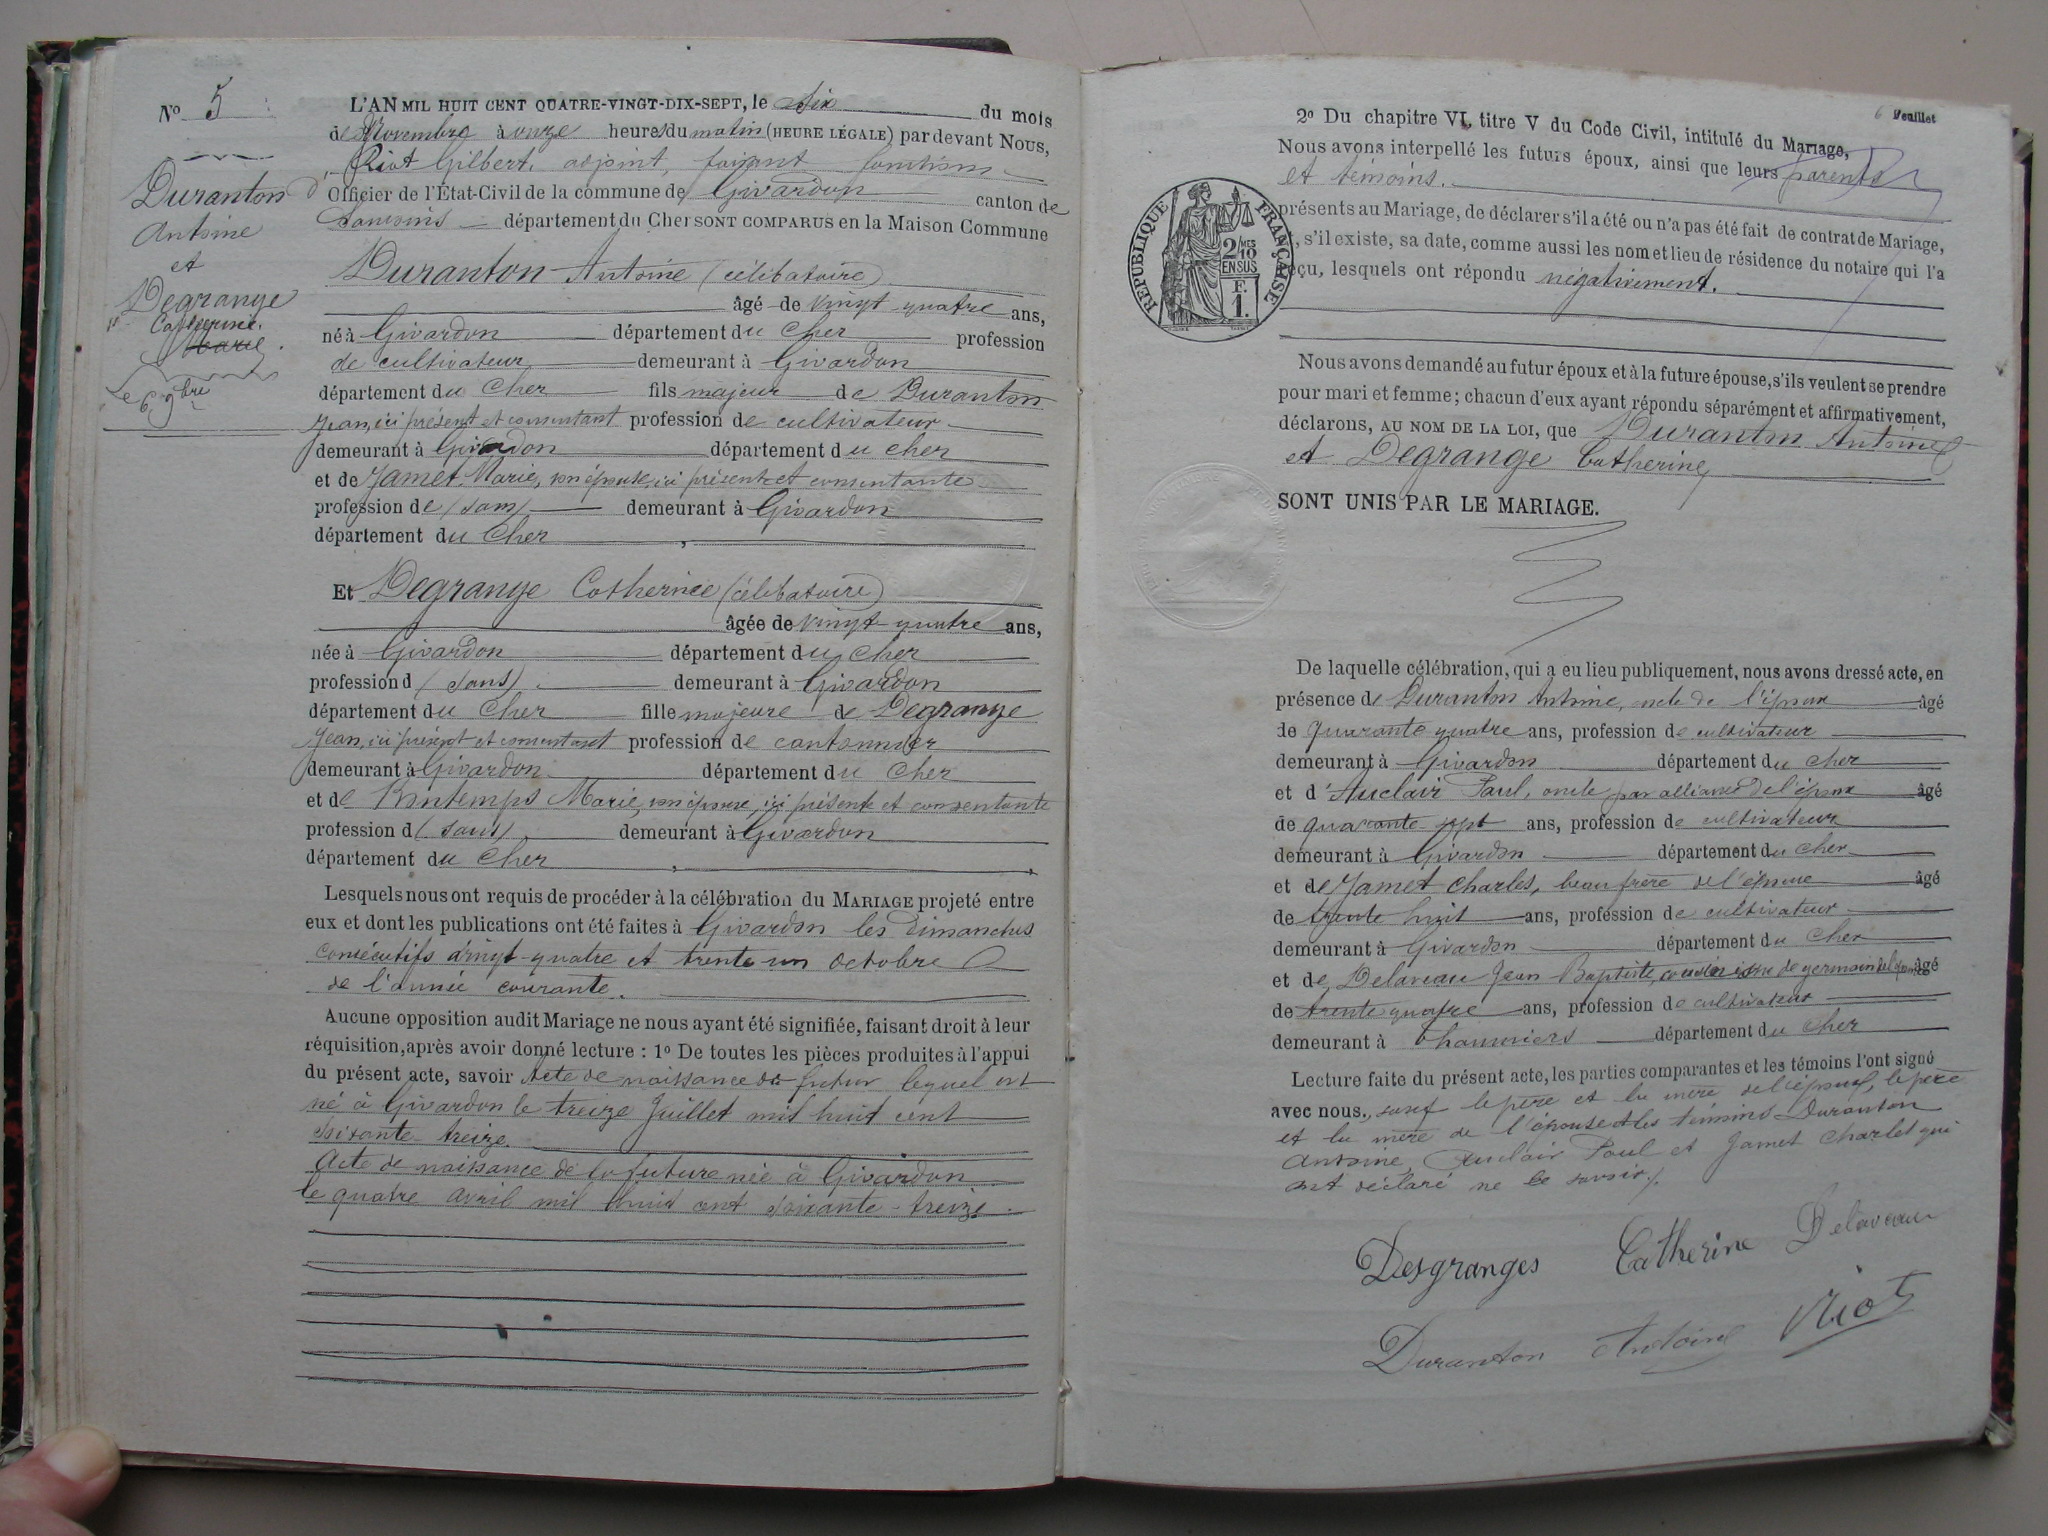 No 5
Duranton
Antoine
et
Degrange
Catherine.
Marie
Le 6 9bre
L'AN MIL HUIT CENT QUATRE-VINGT-DIX-SEPT, le six du mois
de Novembre à onze heures du matin (HEURE LÉGALE) par devant Nous,
Riot Gilbert, adjoint, faisant fonctions
Officier de l'État-Civil de la commune de Givardon canton de
Sancoins département du Cher SONT COMPARUS en la Maison Commune
Duranton Antoine (célibataire)
âgé de vingt quatre ans,
né à Givardon département du Cher profession
de cultivateur demeurant à Givardon
département du Cher fils majeur de Duranton
Jean, ici présent et consentant profession de cultivateur
demeurant à Givardon département du Cher
et de Jamet Marie, son épouse, ici présente et consentante
profession de (sans) demeurant à Givardon
département du Cher
Et Degrange Catherine (célibataire)
âgée de vingt quatre ans,
née à Givardon département du Cher
profession d (sans) demeurant à Givardon
département du Cher fille majeure de Degrange
Jean, ici présent et consentant profession de cantonnier
demeurant à Givardon département du Cher
et de Bontemps Marie, son épouse, ici présente et consentante
profession d (sans) demeurant à Givardon
département du Cher
Lesquels nous ont requis de procéder à la célébration du MARIAGE projeté entre
eux et dont les publications ont été faites à Givardon les dimanches
consécutifs vingt-quatre et trente un octobre
de l'année courante.
Aucune opposition audit Mariage ne nous ayant été signifiée, faisant droit à leur
réquisition, après avoir donné lecture : 1o De toutes les pièces produites à l'appui
du présent acte, savoir Acte de naissance du futur lequel est
né à Givardon le treize Juillet mil huit cent
soixante-treize.
Acte de naissance de la future née à Givardon
le quatre avril mil huit cent soixante-treize.
6 Feuillet
2o Du chapitre VI, titre V du Code Civil, intitulé du Mariage,
Nous avons interpellé les futurs époux, ainsi que leurs parents
et témoins.
présents au Mariage, de déclarer s'il a été ou n'a pas été fait de contrat de Mariage,
, s'il existe, sa date, comme aussi les nom et lieu de résidence du notaire qui l'a
eçu, lesquels ont répondu négativement.
RÉPUBLIQUE FRANÇAISE
2/10 MES
EN SUS
F.
1.
Nous avons demandé au futur époux et à la future épouse, s'ils veulent se prendre
pour mari et femme ; chacun d'eux ayant répondu séparément et affirmativement,
déclarons, AU NOM DE LA LOI, que Duranton Antoine
et Degrange Catherine
SONT UNIS PAR LE MARIAGE.
De laquelle célébration, qui a eu lieu publiquement, nous avons dressé acte, en
présence de Duranton Antoine, oncle de l'époux âgé
de quarante quatre ans, profession de cultivateur
demeurant à Givardon département du Cher
et d'Auclair Paul, oncle par alliance de l'époux âgé
de quarante-sept ans, profession de cultivateur
demeurant à Givardon département du Cher
et de Jamet Charles, beau frère de l'épouse âgé
de trente huit ans, profession de cultivateur
demeurant à Givardon département du Cher
et de Delaveau Jean Baptiste, cousin issu de germain de âgé
de trente quatre ans, profession de cultivateur
demeurant à département du Cher
Lecture faite du présent acte, les parties comparantes et les témoins l'ont signé
avec nous., sauf le père et la mère de l'époux, le père
et la mère de l'épouse et les témoins Duranton
Antoine, Auclair Paul et Jamet Charles qui
ont déclaré ne le savoir.
Desgranges Catherine Delaveau
Duranton Antoine Riot